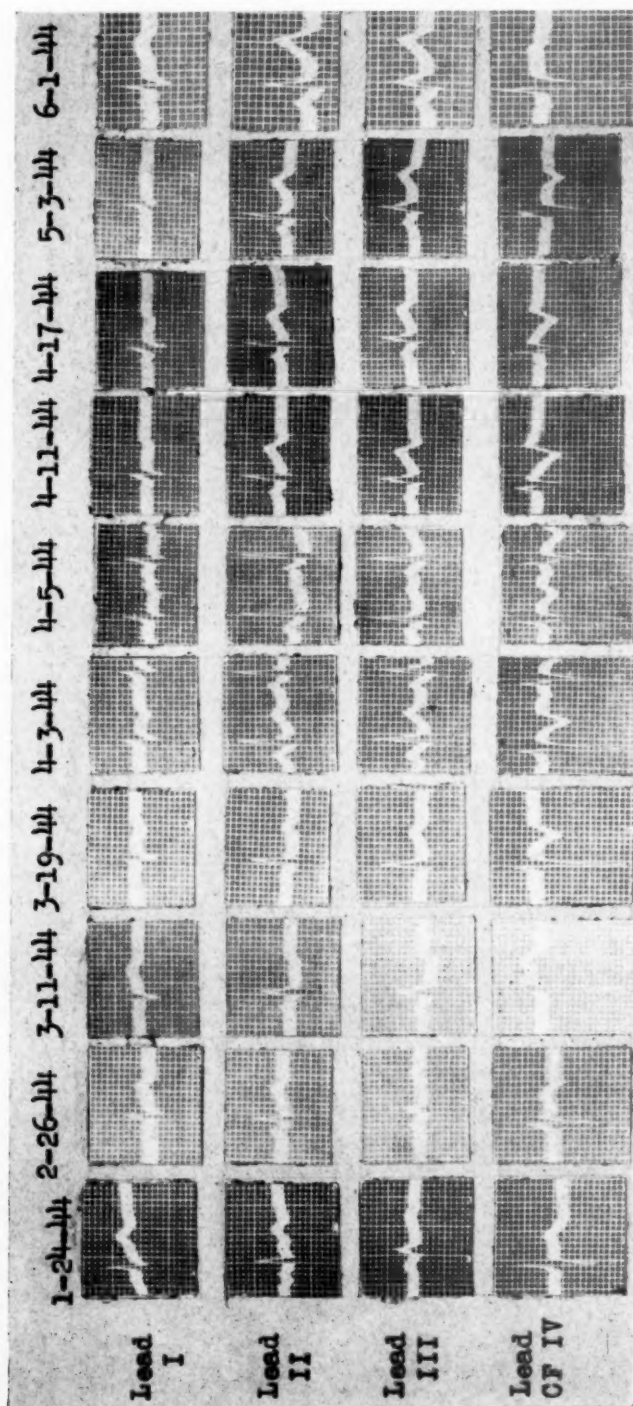 1-24-44 2-26-44 3-11-44 3-19-44 4-3-44 4-5-44 4-11-44 4-17-44 5-3-44 6-1-44
Lead
I
Lead
II
Lead
III
Lead
CF IV